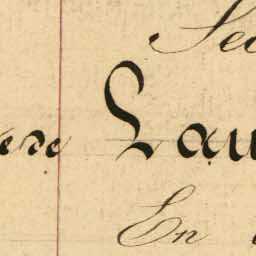 Sec
ere Lau
En